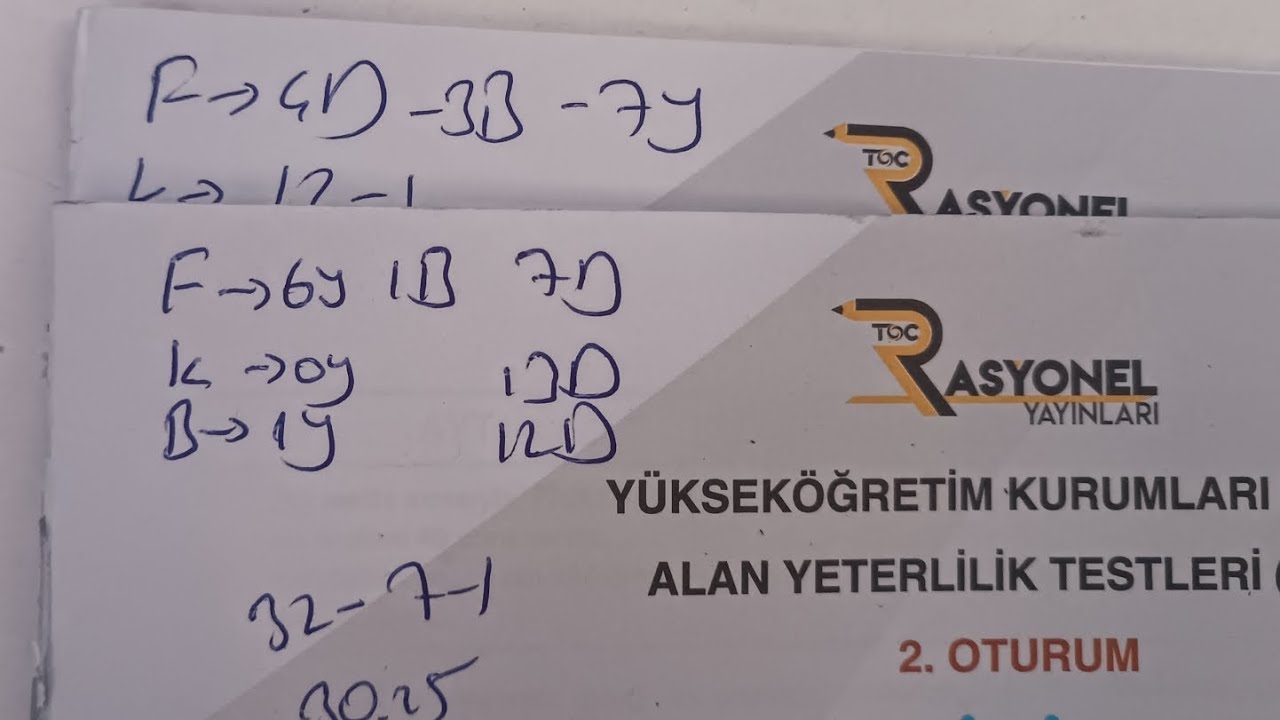 F→4D -3B -7y
K→ 12-1
TOC
RASYONEL
F→6y 1B 7D
K→0y 13D
B→1y 12D
TOC
RASYONEL
YAYINLARI
YÜKSEKÖĞRETİM KURUMLARI
ALAN YETERLİLİK TESTLERİ (
32-7-1
2. OTURUM
30.25